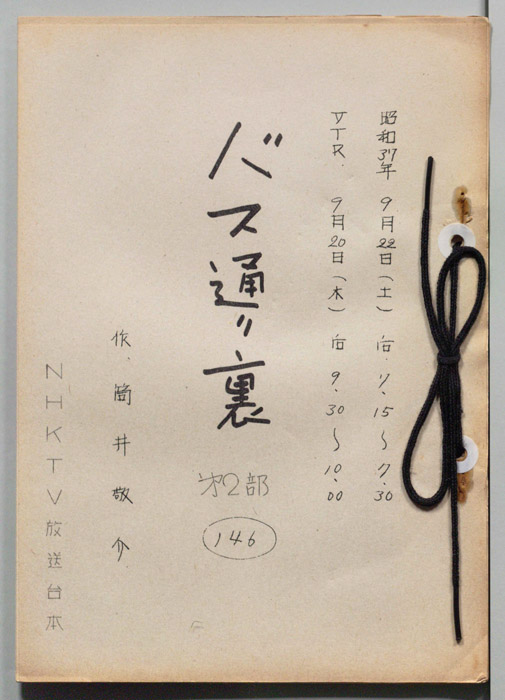 昭和37年 9月22日(土) 后.7.15〜7.30
VTR. 9月20日(木) 后 9.30〜10.00
バス通り裏
第2部
146
作.筒井敬介
NHKTV放送台本